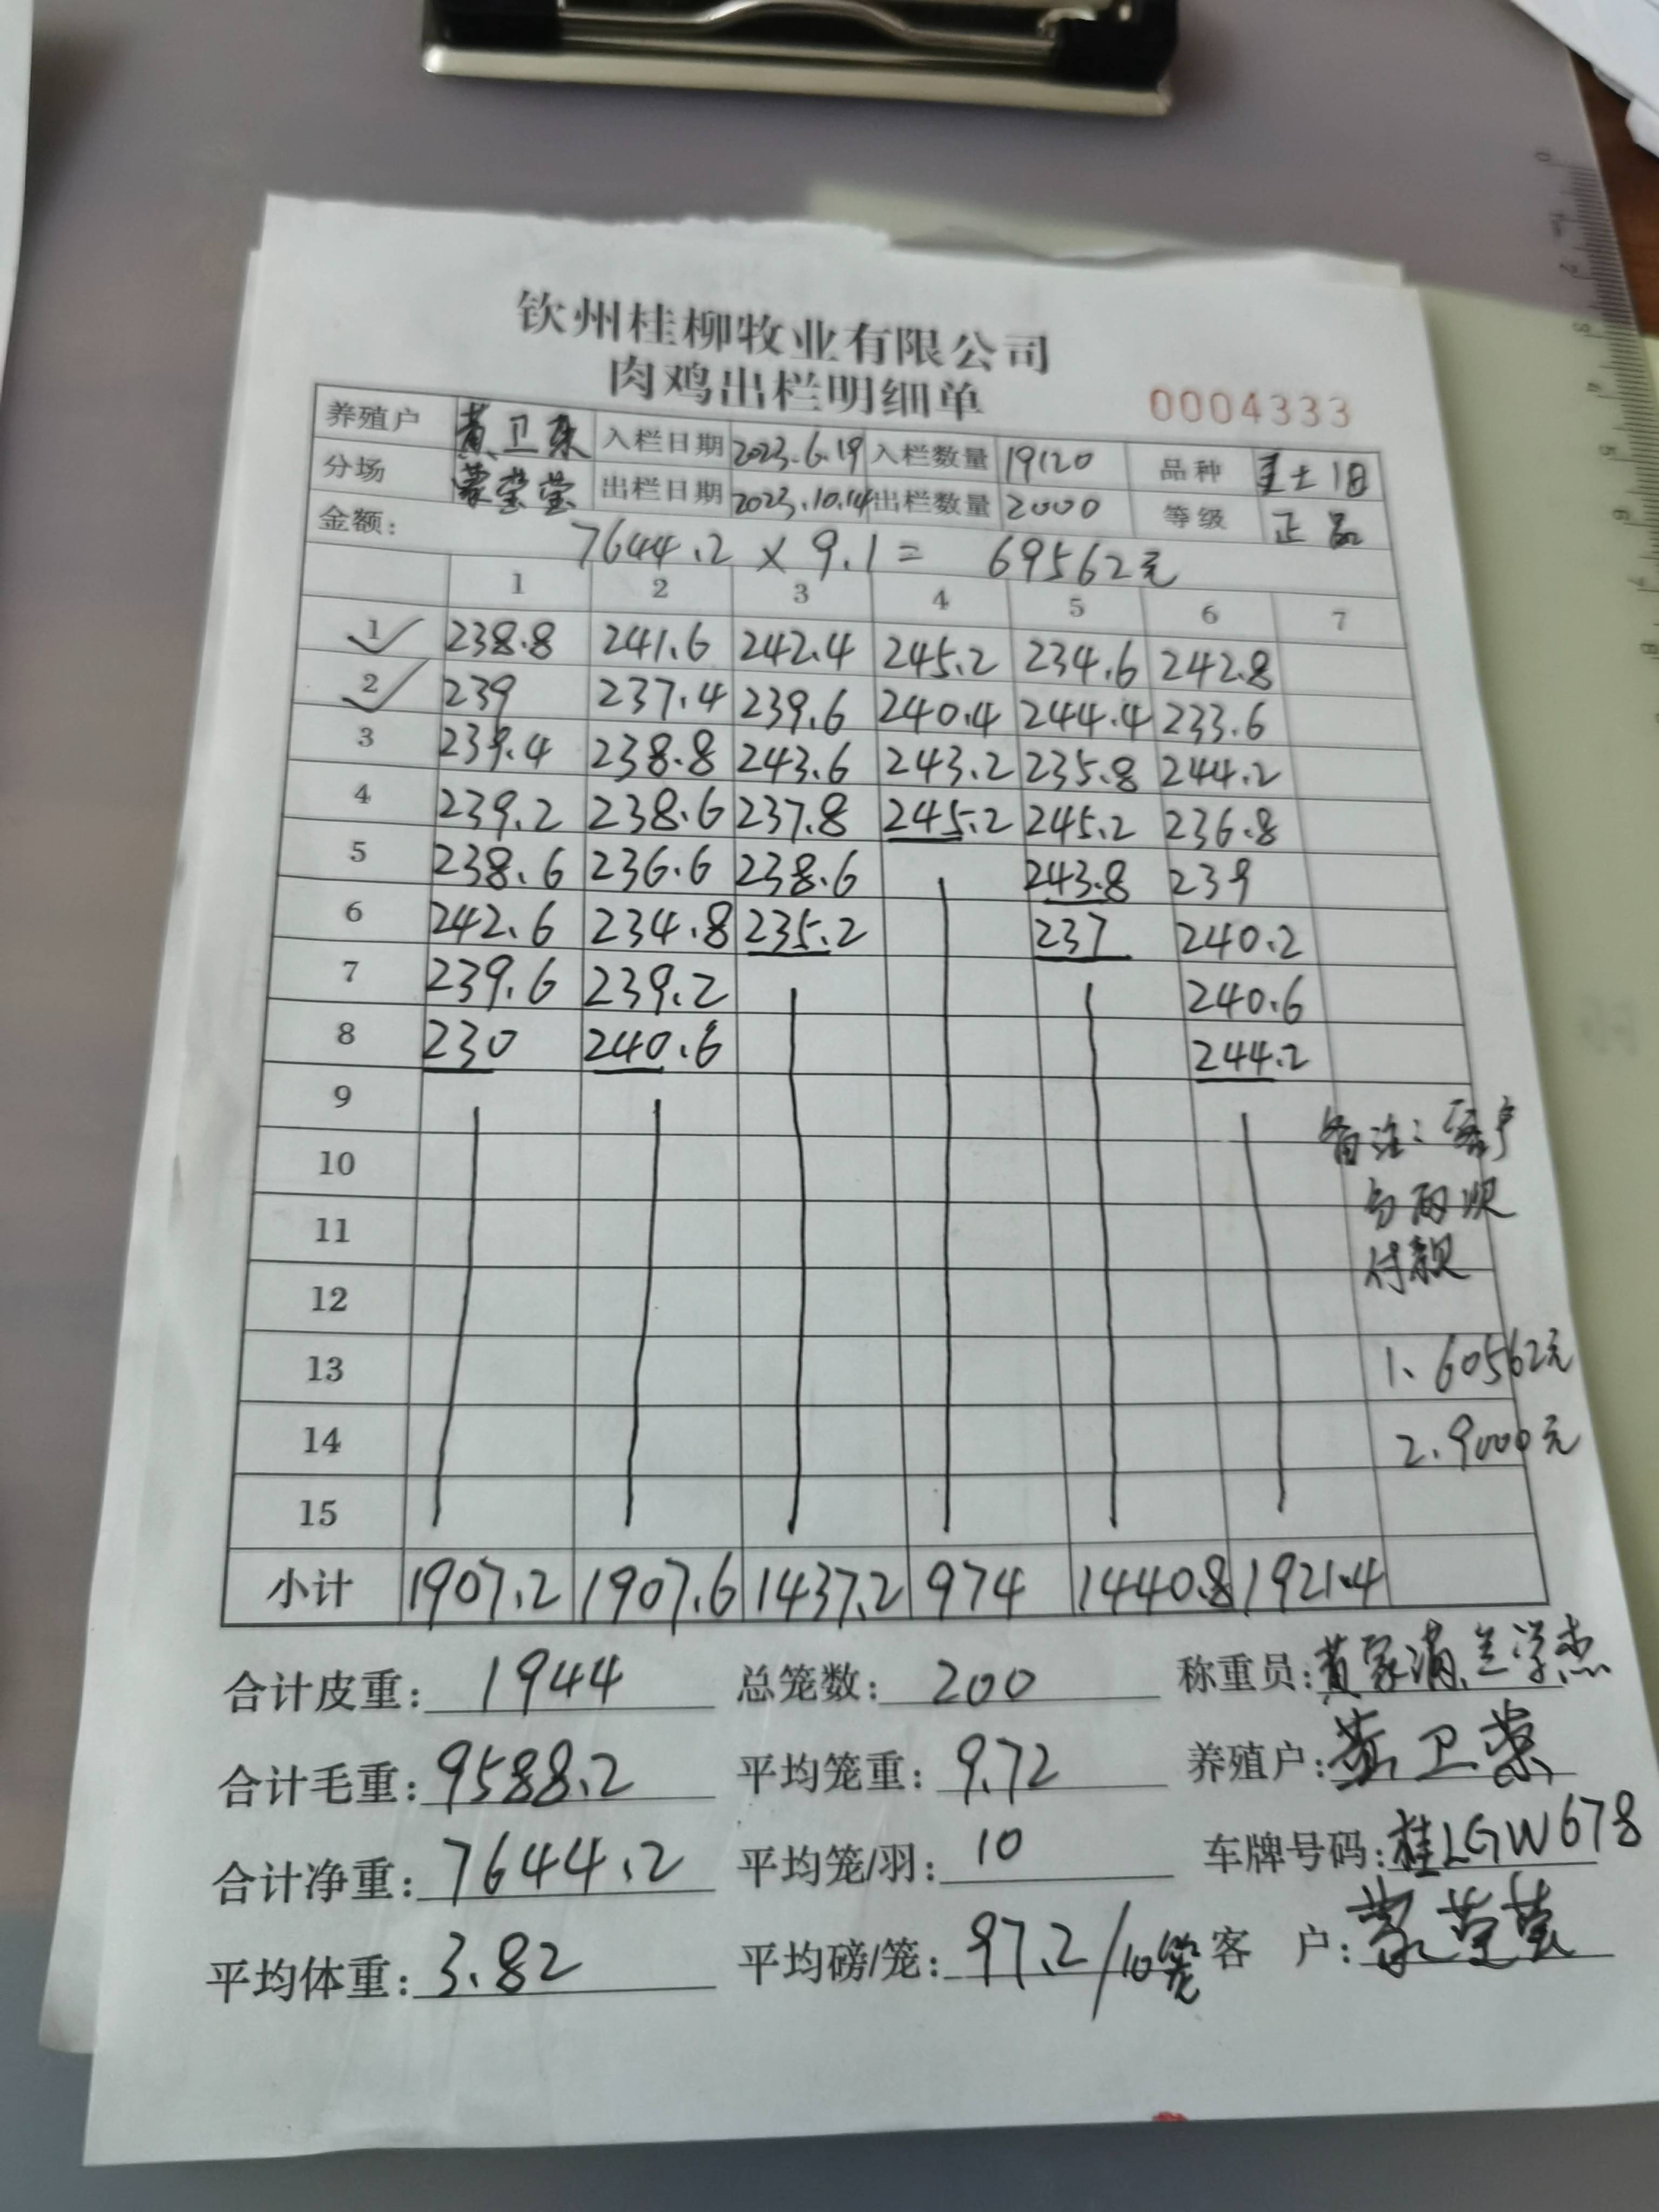 钦州桂柳牧业有限公司
肉鸡出栏明细单
0004333
养殖户 黄卫荣 入栏日期 2023.6.19 入栏数量 19120 品种
分场 蒙莹莹 出栏日期 2023.10.14 出栏数量 2000 等级 正品
金额: 7644.2 × 9.1 = 69562元
1 2 3 4 5 6 7
1 238.8 241.6 242.4 245.2 234.6 242.8
2 239 237.4 239.6 240.4 244.4 233.6
3 239.4 238.8 243.6 243.2 235.8 244.2
4 239.2 238.6 237.8 245.2 245.2 236.8
5 238.6 236.6 238.6 243.8 239
6 242.6 234.8 235.2 237 240.2
7 239.6 239.2 240.6
8 230 240.6 244.2
9
备注:客户
10
分两次
11
付款
12
13 1、60562元
14 2.9000元
15
小计 1907.2 1907.6 1437.2 974 1440.8 1921.4
合计皮重: 1944 总笼数: 200 称重员: 黄家满
合计毛重: 9588.2 平均笼重: 9.72 养殖户: 黄卫荣
合计净重: 7644.2 平均笼/羽: 10 车牌号码: 桂LGW678
平均体重: 3.82 平均磅/笼: 97.2/10笼 客 户: 蒙莹莹